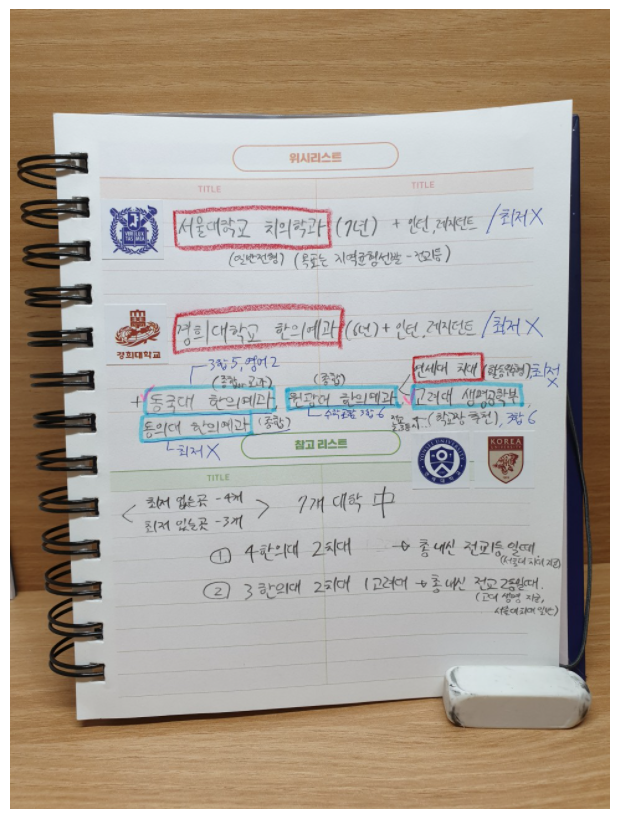 위시리스트
TITLE TITLE
서울대학교 치의학과 (7년) + 인턴, 레지던트 / 최저 X
(일반전형) (목표는 지역균형선발 - 전교1등)
경희대학교
경희대학교 한의예과 (6년) + 인턴, 레지던트 / 최저 X
3합 5, 영어 2
(종합 or 교과) (종합) 연세대 치대 (활동우수형) 최저 X
+ 동국대 한의예과, 원광대 한의예과 고려대 생명공학부,
수학포함 3합 6
동의대 한의예과 (종합) (학교장 추천), 3합 6
최저 X
참고 리스트
KOREA
TITLE
최저 있는곳 - 4개
최저 있는곳 - 3개
7개 대학 中
① 4한의대 2치대 → 총 내신 전교1등일때.
② 3한의대 2치대 1고려대 → 총내신 전교 2등일때.
(고대 생명 지균,